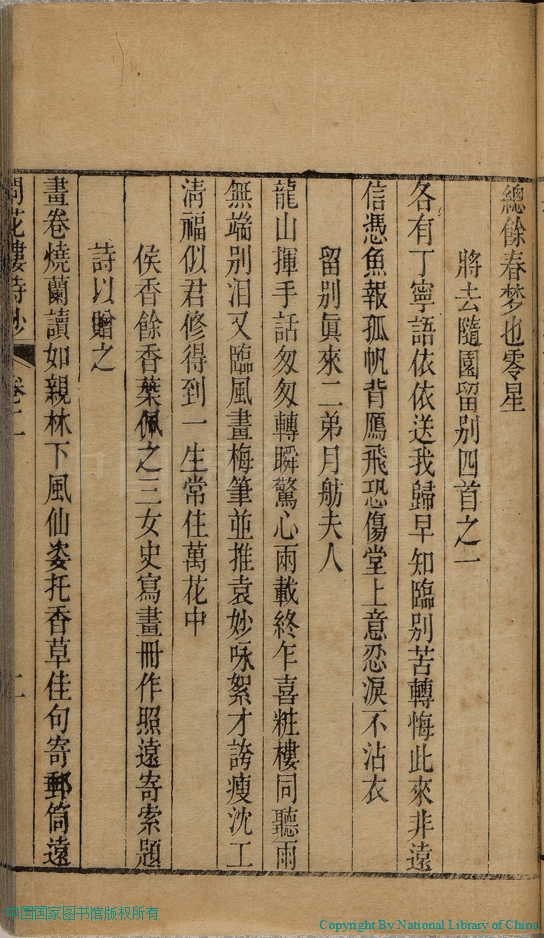 總餘春梦也零星
將去隨園留别四首之一
各有丁寧語依依送我歸早知臨别苦轉悔此來非遠
信憑魚報孤帆背鴈飛恐傷堂上意忍淚不沾衣
留别眞來二弟月舫夫人
龍山揮手話匆匆轉瞬驚心兩載終乍喜粧樓同聽雨
無端别泪又臨風畫梅筆並推袁妙咏絮才誇瘦沈工
清福似君修得到一生常住萬花中
侯香餘香葉佩之三女史寫畫冊作照遠寄索題
詩以贈之
畫卷燒蘭讀如親林下風仙姿托香草佳句寄郵筒遠
問花樓詩鈔
卷二
二
中国国家图书馆版权所有
Copyright By National Library of China